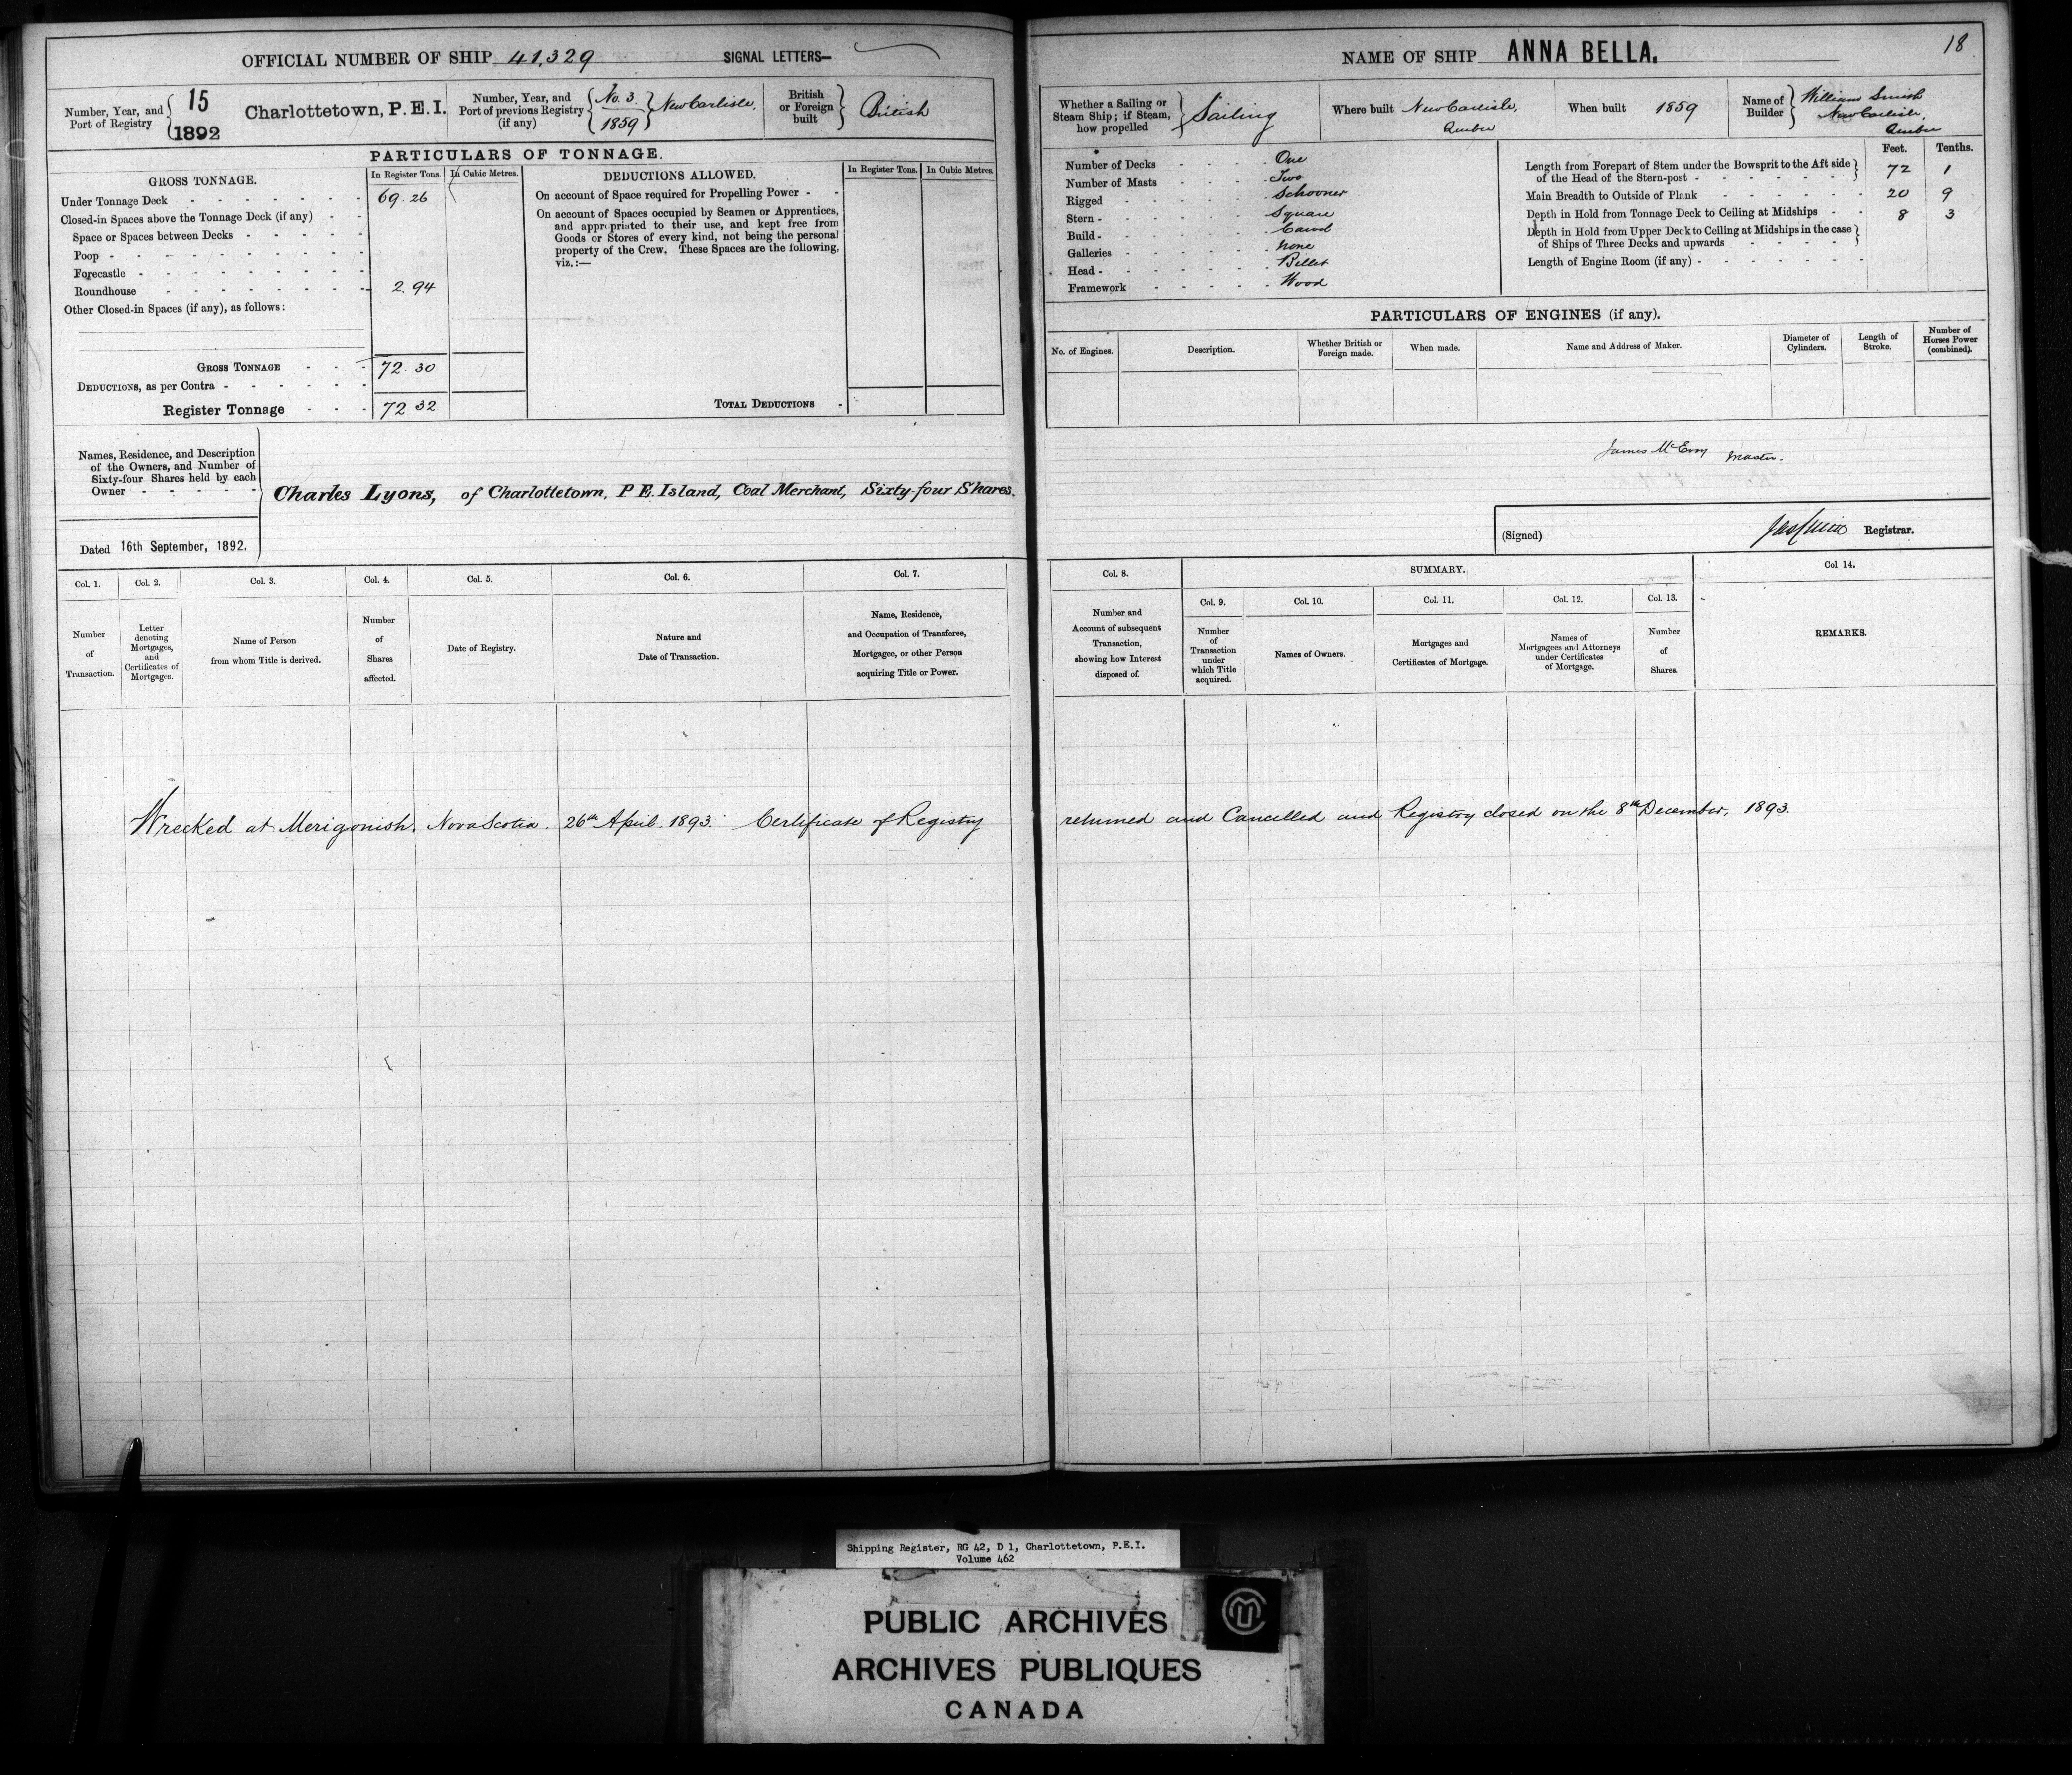 OFFICIAL NUMBER OF SHIP 41,329 SIGNAL LETTERS—
Number, Year, and Port of Registry { 15 1892 Charlottetown, P.E.I.
Number, Year, and Port of previous Registry (if any) { No. 3 1859 } New Carlisle,
British or Foreign built } British
PARTICULARS OF TONNAGE.
GROSS TONNAGE. In Register Tons. In Cubic Metres.
Under Tonnage Deck 69.26
Closed-in Spaces above the Tonnage Deck (if any)
Space or Spaces between Decks
Poop
Forecastle
Roundhouse 2.94
Other Closed-in Spaces (if any), as follows:
GROSS TONNAGE 72.30
DEDUCTIONS, as per Contra
Register Tonnage 72 32
DEDUCTIONS ALLOWED. In Register Tons. In Cubic Metres.
On account of Space required for Propelling Power
On account of Spaces occupied by Seamen or Apprentices,
and appropriated to their use, and kept free from
Goods or Stores of every kind, not being the personal
property of the Crew. These Spaces are the following,
viz.:—
TOTAL DEDUCTIONS
Names, Residence, and Description
of the Owners, and Number of
Sixty-four Shares held by each
Owner
Charles Lyons, of Charlottetown, P E. Island, Coal Merchant, Sixty-four Shares.
Dated 16th September, 1892.
Col. 1. Col. 2. Col. 3. Col. 4. Col. 5. Col. 6. Col. 7.
Number of Transaction.
Letter denoting Mortgages, and Certificates of Mortgages.
Name of Person from whom Title is derived.
Number of Shares affected.
Date of Registry.
Nature and Date of Transaction.
Name, Residence, and Occupation of Transferee, Mortgagee, or other Person acquiring Title or Power.
Wrecked at Merigonish. Nova Scotia. 26th April. 1893. Certificate of Registry
18
NAME OF SHIP ANNA BELLA.
Whether a Sailing or Steam Ship; if Steam, how propelled } Sailing
Where built New Carlisle, Quebec
When built 1859
Name of Builder } William Smith New Carlisle, Quebec
Number of Decks One
Number of Masts Two
Rigged Schooner
Stern Square
Build Carvel
Galleries None
Head Billet
Framework Wood
Feet. Tenths.
Length from Forepart of Stem under the Bowsprit to the Aft side
of the Head of the Stern-post 72 1
Main Breadth to Outside of Plank 20 9
Depth in Hold from Tonnage Deck to Ceiling at Midships 8 3
Depth in Hold from Upper Deck to Ceiling at Midships in the case
of Ships of Three Decks and upwards
Length of Engine Room (if any)
PARTICULARS OF ENGINES (if any).
No. of Engines. Description. Whether British or Foreign made. When made. Name and Address of Maker. Diameter of Cylinders. Length of Stroke. Number of Horses Power (combined).
James McEvoy Master.
(Signed) Registrar.
Col. 8. SUMMARY. Col 14.
Col. 9. Col. 10. Col. 11. Col. 12. Col. 13.
Number and Account of subsequent Transaction, showing how Interest disposed of.
Number of Transaction under which Title acquired.
Names of Owners.
Mortgages and Certificates of Mortgage.
Names of Mortgagees and Attorneys under Certificates of Mortgage.
Number of Shares.
REMARKS.
returned and Cancelled and Registry closed on the 8th December, 1893.
Shipping Register, RG 42, D 1, Charlottetown, P.E.I.
Volume 462
PUBLIC ARCHIVES
ARCHIVES PUBLIQUES
CANADA